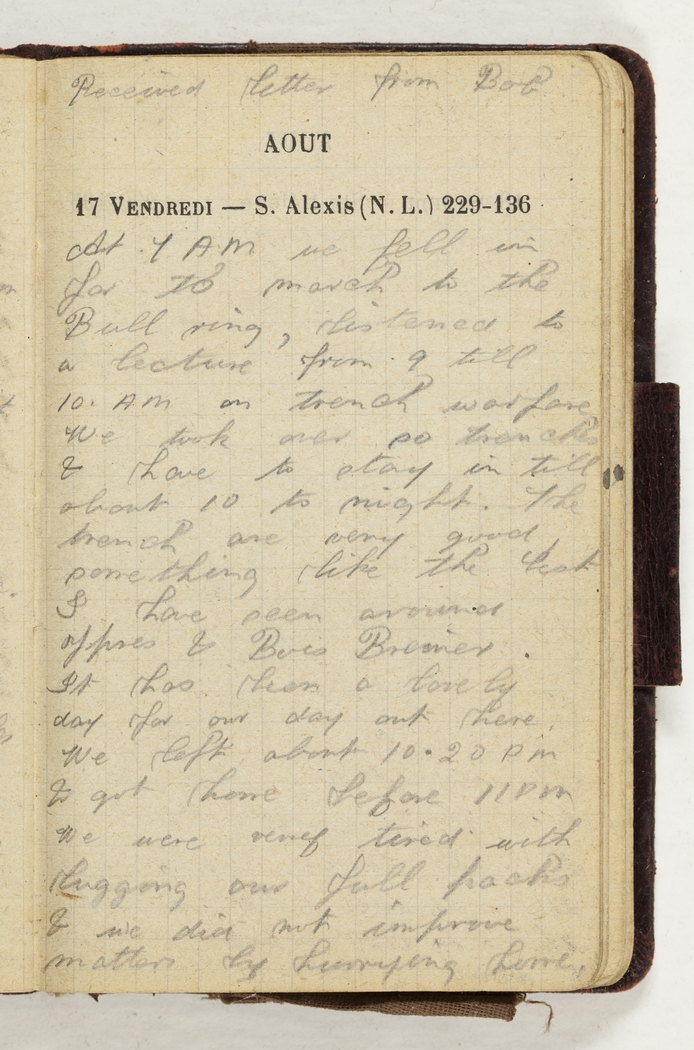 Received letter from Bob
AOUT
17 VENDREDI — S. Alexis (N. L.) 229-136
At 7 AM we fell in
for to march to the
Bull ring, listened to
a lecture from 9 till
10. AM on trench warfare
We took over so trenches
& have to stay in till
about 10 to night. The
trench are very good,
something like the best
I have seen around
& Bois
It has been a lovely
day for our day out here.
We left about 10.20 PM
& got home before 11 PM
We were very tired with
lugging our full packs
& we did not improve
matters by hurrying home.